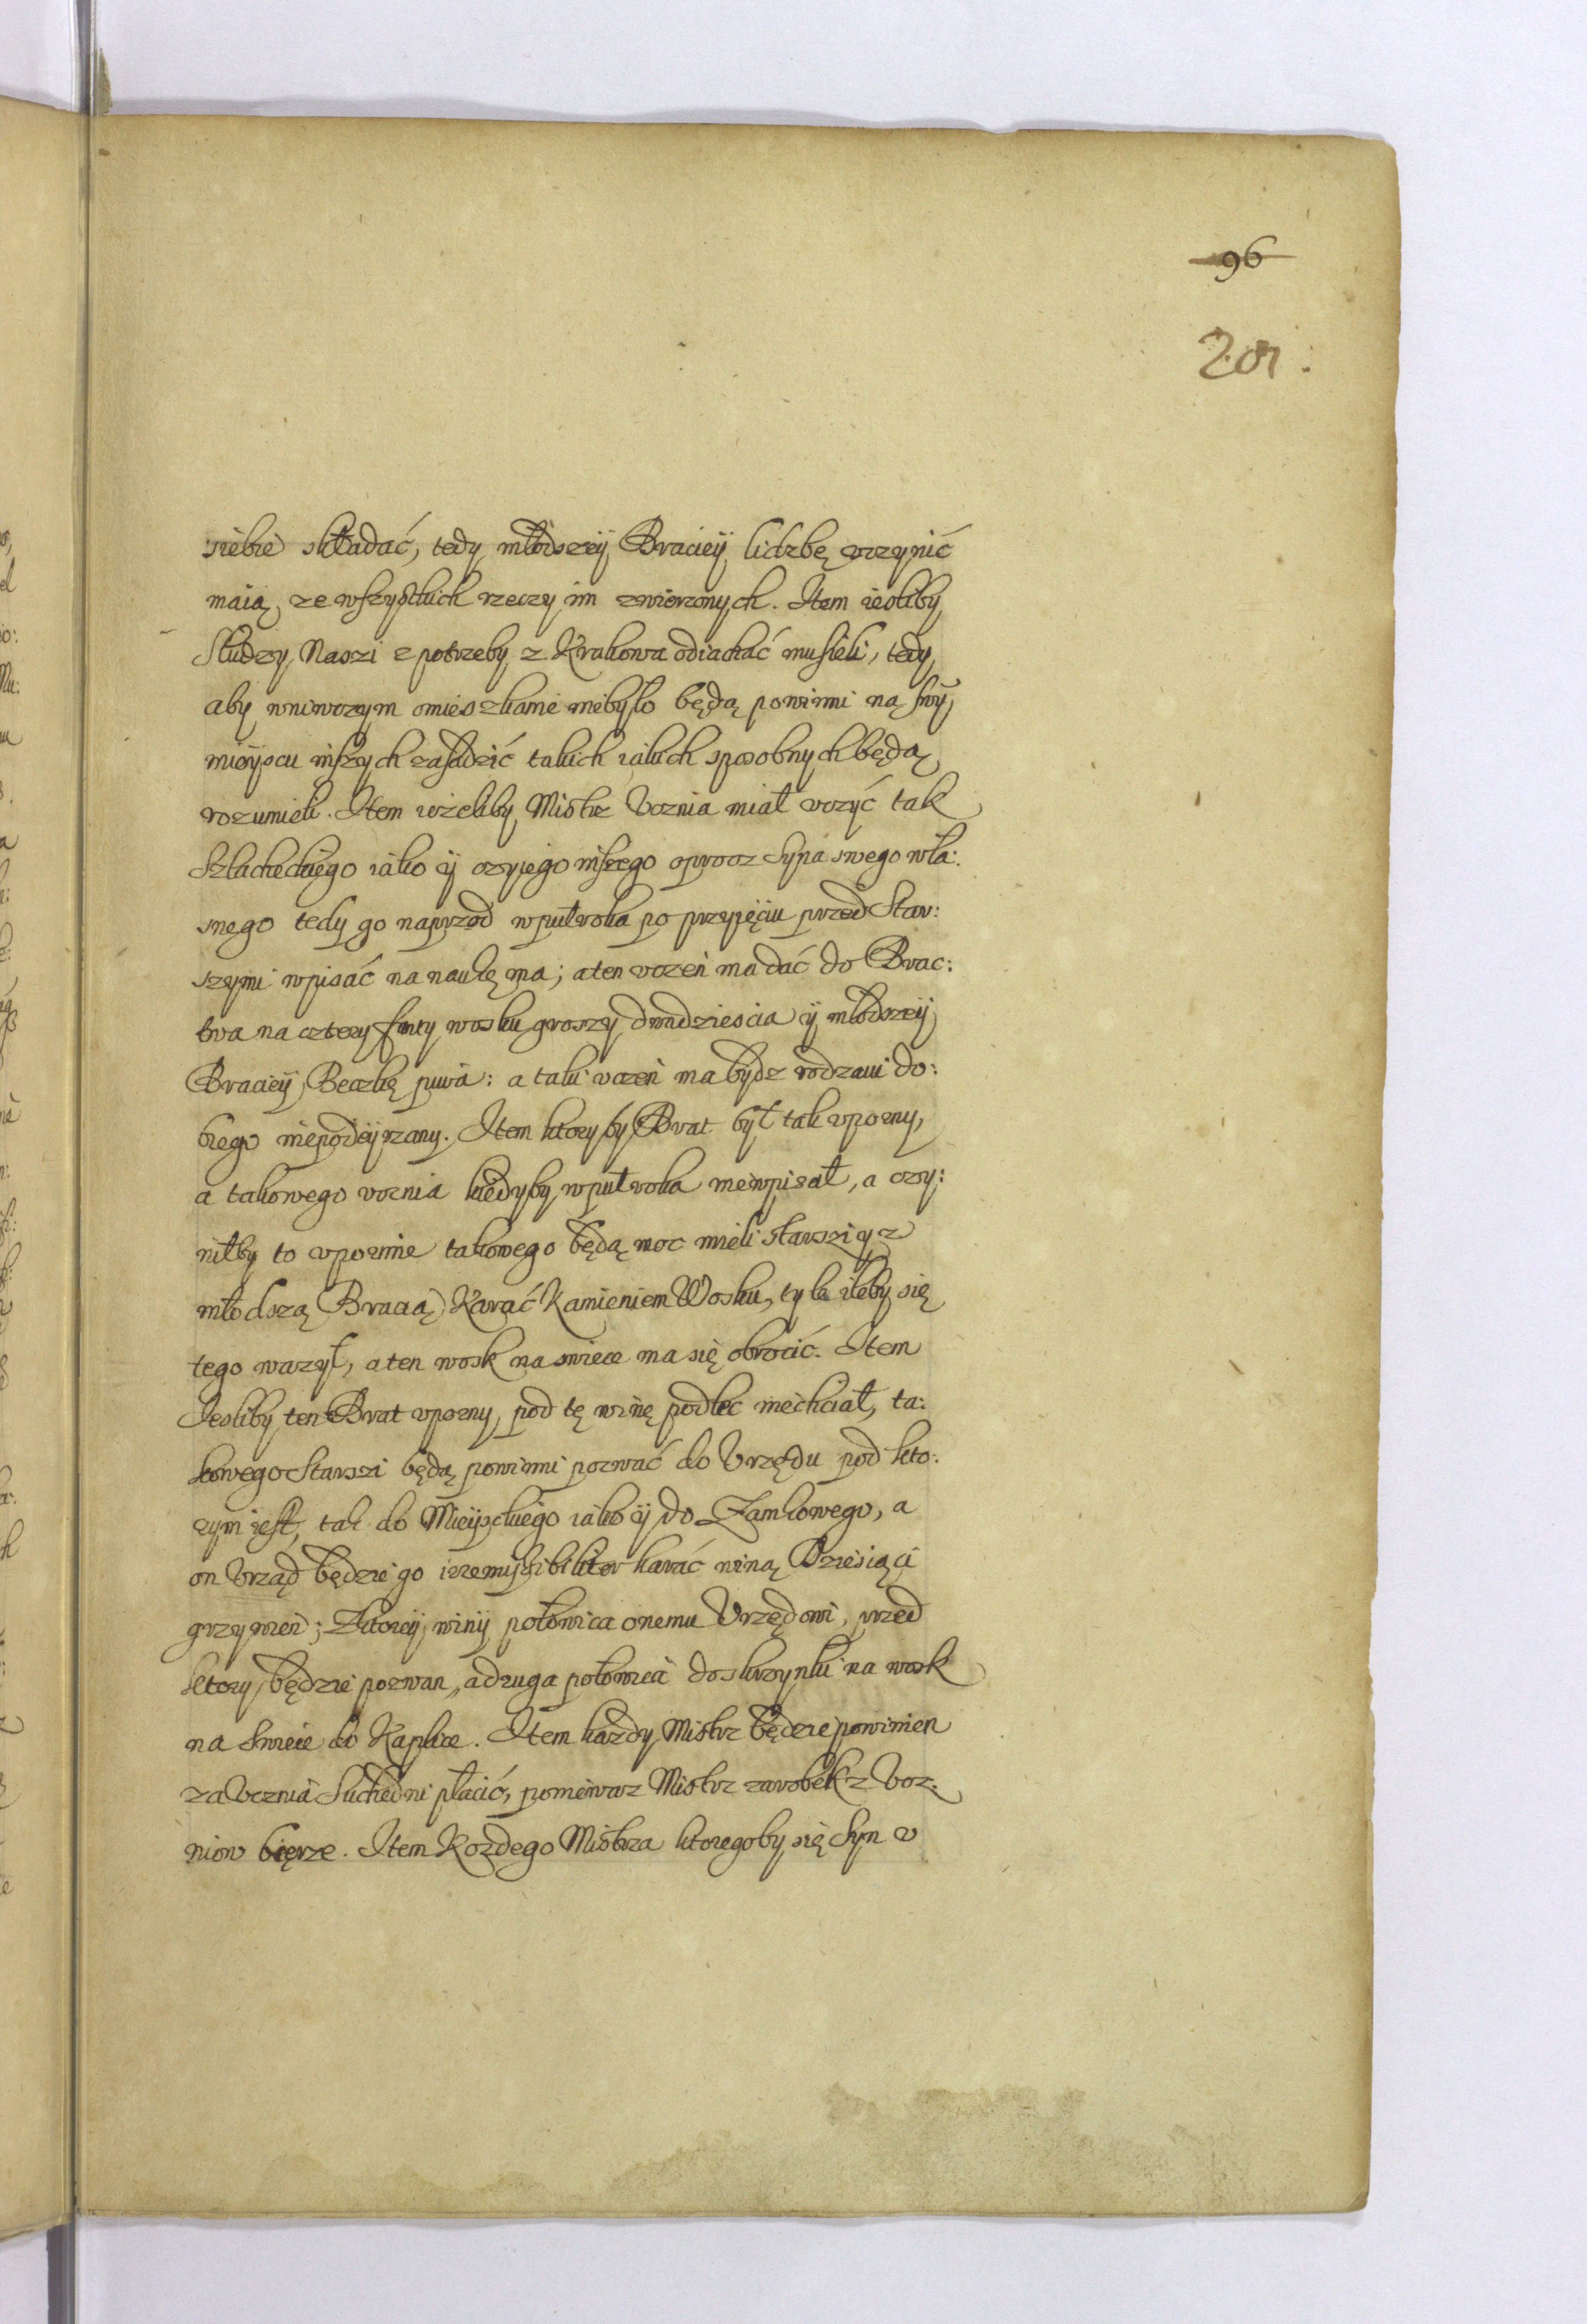 96
201.
siebie składać, tedy młodszeÿ Bracieÿ lidzbę vczynić
maią, ze wszystkich rzeczy im zwierzonych. Item iesliby
Słudzy Naszi z potrzeby z Krakowa odiachać musieli, tedy
aby wniwczym omieszkanie niebyło będą powinni ną swÿ
mieÿscu inszych zasadzić takich iakich sposobnych będą
rozumieli. Item ieżeliby Mistrz Vcznia miał vczyć tak
Szlacheckiego iako ÿ czyiego inszego oprocz Syna swego wła:
snego tedy go naprzod w puł roka po przyięciu przed Star:
szymi wpisać na naukę ma; a ten vczeń ma dać do Brac:
twa na cztery funty wosku groszy dwadziescia ÿ młodszeÿ
Bracieÿ Beczkę piwa: a taki vczeń ma bydz rodzaiu do:
brego niepodeÿrzany. Item ktoryby Brat był tak vporny,
a takowego vcznia kiedyby w puł roka niewpisał, a czy:
niłby to vpornie takowego będą moc mieli starszi y z
młodszą Bracią Karać Kamieniem Wosku, tyle ileby się
tego wazył, a ten wosk na swiece ma się obrocić. Item
Iesliby ten Brat vporny pod tę winę podlec niechciał, ta:
kowego Starszi będą powinni pozwać do Vrzędu pod kto:
rym iest, tak do Mieÿsckiego iako ÿ do Zamkowego, a
on Vrząd będzie go irremissibiliter karać winą Dziesiąci
grzywien; Z ktoreÿ winÿ połowica onemu Vrzędowi, przed
ktory będzie pozwan, a druga połowica do skrzynki na wosk
na Swiece do Kaplice. Item każdy Mistrz będzie powinien
za Vcznia Suchedni płacić, poniewarz Mistrz zarobek z Vcz:
niow bierze. Item Kozdego Mistrza ktoregoby się Syn v